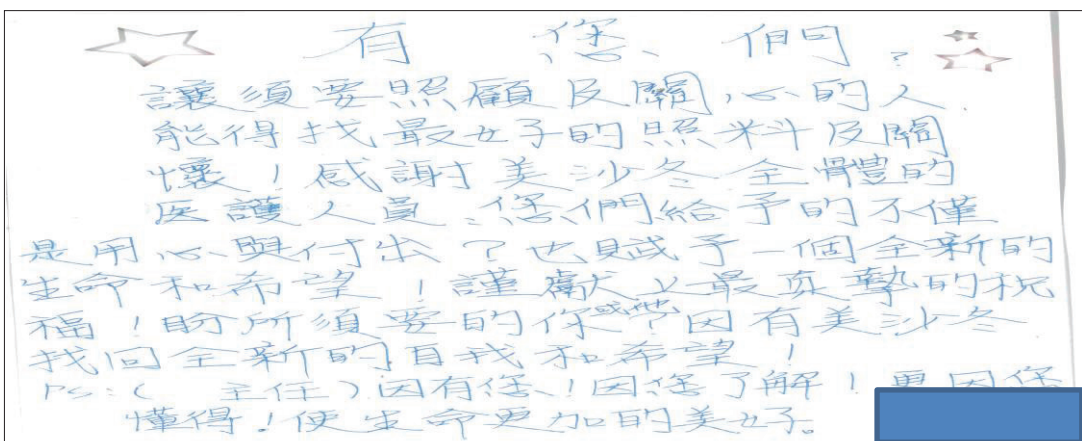 有 您 們?
讓須要照顧及關心的人
能得找最好的照料及關
懷!感謝美沙冬全體的
医護人員、您們給予的不僅
是用心與付出?也賦予一個全新的
生命和希望!謹獻上最真摯的祝
福!盼所須要的你或他因有美沙冬
找回全新的自我和希望!
PS:( 主任)因有您!因您了解!更因您
懂得!使生命更加的美好。